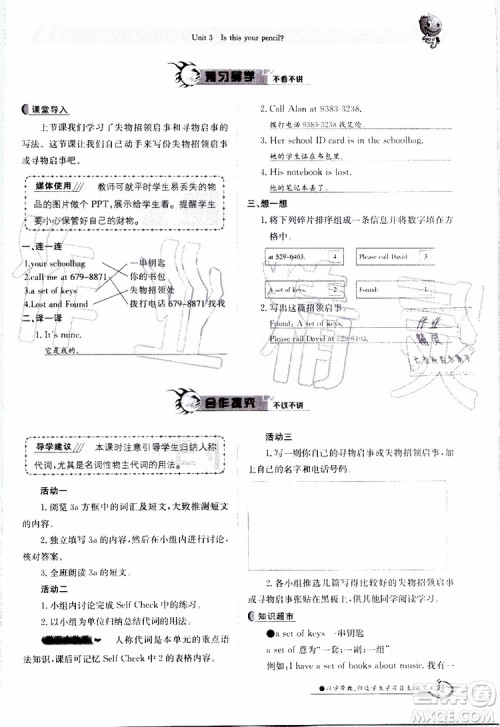 Unit 3 Is this your pencil?
预习导学 不看不讲
课堂导入
上节课我们学习了失物招领启事和寻物启事的
写法。这节课让我们自己动手来写份失物招领启事
或寻物启事。
媒体使用 教师可就平时学生易丢失的物
品的图片做个 PPT,展示给学生看。提醒学
生要小心保管好自己的财物。
一、连一连
1.your schoolbag 一串钥匙
2.call me at 679-8871 你的书包
3.a set of keys 失物招领
4.Lost and Found 拨打电话 679-8871
二、译一译
1. It's mine.
它是我的。
2. Call Alan at 9383-3238.
拨打电话 9383-3238 找艾伦
3. Her school ID card is in the schoolbag.
她的学生证在书包里。
4. His notebook is lost.
他的笔记本丢了。
三、想一想
1. 将下列碎片排序组成一条信息并将数字填在方
格中。
at 529-6403. 4 Please call David 3
A set of keys. 2 Found: 1
2. 写出这篇招领启事。
Found: A set of keys.
Please call David at 529-6403.
作业
精灵
合作探究 不议不讲
导学建议 本课时注意引导学生归纳人称
代词,尤其是名词性物主代词的用法。
活动一
1. 阅览 3a 方框中的词汇并讨论推测短文的内容。
2. 独立完成 3a 的短文,在小组内讨论内容,
核对答案。
3. 全班朗读 3a 的短文。
活动二
1. 小组内讨论完成 Self Check 中的练习。
2. 以小组为单位归纳总结代词的用法。
人称代词是本单元的重点语
法知识,课后可记忆 Self Check 中的相关知识。
活动三
1. 写一写你自己的寻物启事或失物招领启事,附上
自己的名字和电话号码。
2. 各小组将完成得比较好的失物招领启事或
寻物启事张贴在黑板上,供其他同学观摩学习。
知识超市
● a set of keys 一串钥匙
a set of 意为“一套;一副;一串”。
例如:I have a set of books about music. 我